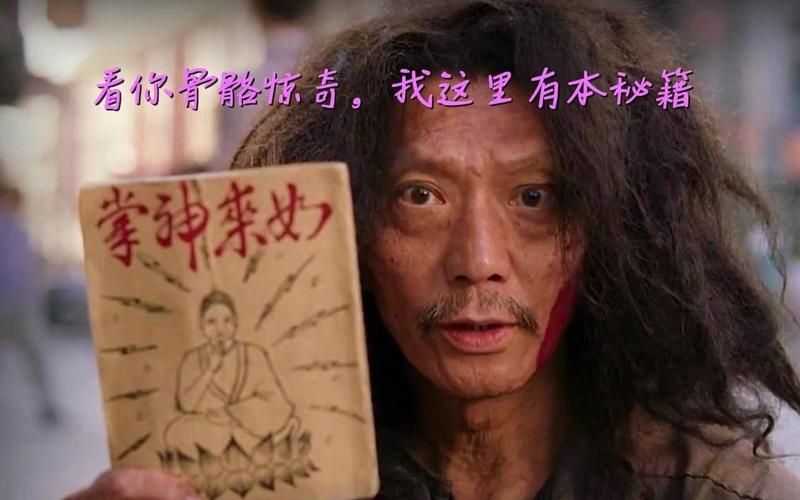 看你骨骼惊奇，我这里有本秘籍
如來神掌